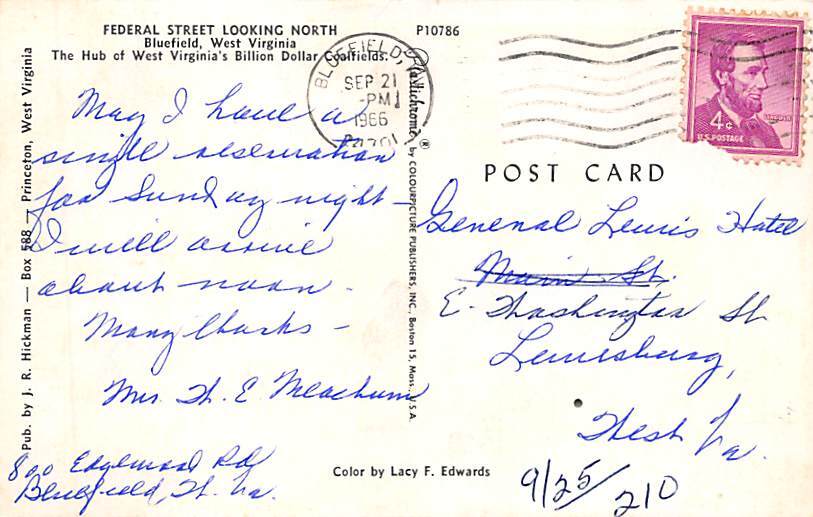 FEDERAL STREET LOOKING NORTH
Bluefield, West Virginia
The Hub of West Virginia's Billion Dollar Coalfields.
P10786
BLUEFIELD,
SEP 21
-PM
1966
4¢
U.S. POSTAGE
POST CARD
May I have a
single reservation
for Sunday night -
I will arrive
about noon -
Many thanks -
Mrs. W. E. Meachum
800 Edgewood Rd
Bluefield, W. Va.
General Lewis Hotel
Main St.
E. Washington St
Lewisburg,
West Va.
9/25/210
Pub. by J. R. Hickman — Box 588 — Princeton, West Virginia
Plastichrome® by COLOURPICTURE PUBLISHERS, INC., Boston 15, Mass., U.S.A.
Color by Lacy F. Edwards